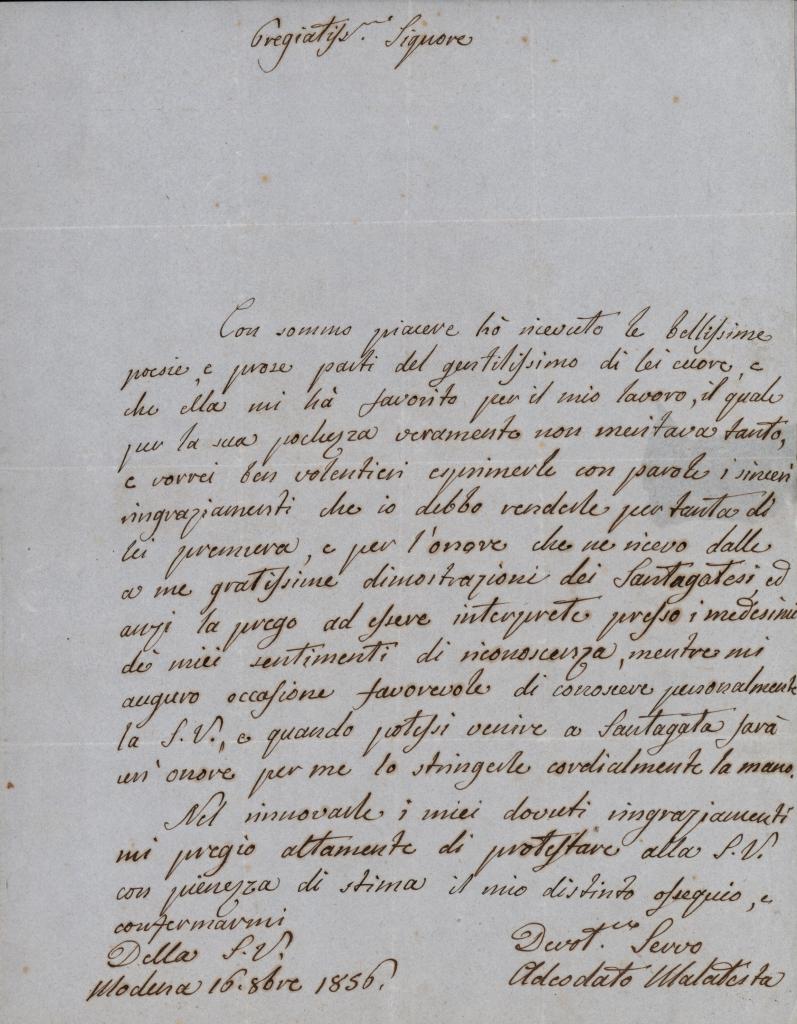 Pregiatiss.mo Signore
Con sommo piacere hò ricevuto le bellissime
poesie, e prose parti del gentilissimo di lei cuore, e
che ella mi hà favorito per il mio lavoro, il quale
per la sua pochezza veramente non meritava tanto,
e vorrei ben volentieri esprimerle con parole i sinceri
ringraziamenti che io debbo renderle per tanta di
lei premura, e per l'onore che ne ricevo dalle
a me gratissime dimostrazioni dei Santagatesi, ed
anzi la prego ad essere interprete presso i medesimi
dè miei sentimenti di riconoscenza, mentre mi
auguro occasione favorevole di conoscere personalmente
la S. V., e quando potessi venire a Santagata sarà
un' onore per me lo stringerle cordialmente la mano.
Nel rinnovarle i miei dovuti ringraziamenti
mi pregio altamente di protestare alla S. V.
con pienezza di stima il mio distinto ossequio, e
confermarmi
Della S. V.
Devot.mo Servo
Modena 16. 8bre 1856.
Adeodato Malatesta